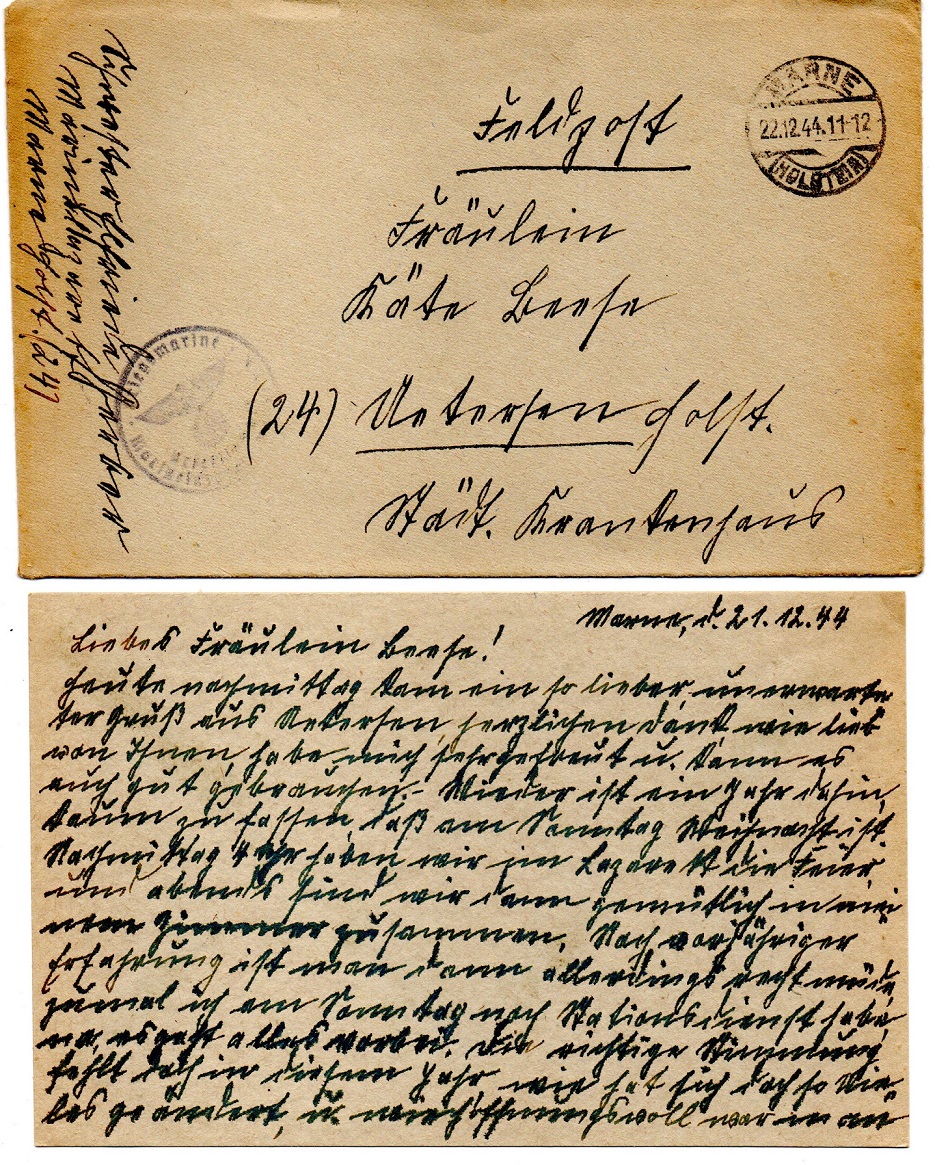 Feldpost
MARNE
22.12.44.11-12
(HOLSTEIN)
Fräulein
Käte Beese
(24) Uetersen Holst.
Städt. Krankenhaus
Marinelazarett
Marne Holst. (24)
Kriegsmarine
Marne, d. 21.12.44
Liebes Fräulein Beese!
Heute nachmittag kam ein so lieber unerwarte
ter Gruß aus Uetersen, herzlichen Dank wie lieb
von Ihnen, habe mich sehr gefreut u. kann es
auch gut gebrauchen. Wieder ist ein Jahr dahin,
kaum zu fassen, daß am Sonntag Weihnacht ist.
Nachmittag 4 Uhr haben wir im Lazarett die Feier
und abends sind wir dann gemütlich in mei
nem Zimmer zusammen. Nach vorjähriger
Erfahrung ist man dann allerdings recht müde,
zumal ich am Sonntag noch Stationsdienst habe,
na, es geht alles vorbei. Die richtige Stimmung
fehlt doch in diesem Jahr, wie hat sich doch so vie
les geändert, u. wie hoffnungsvoll war man